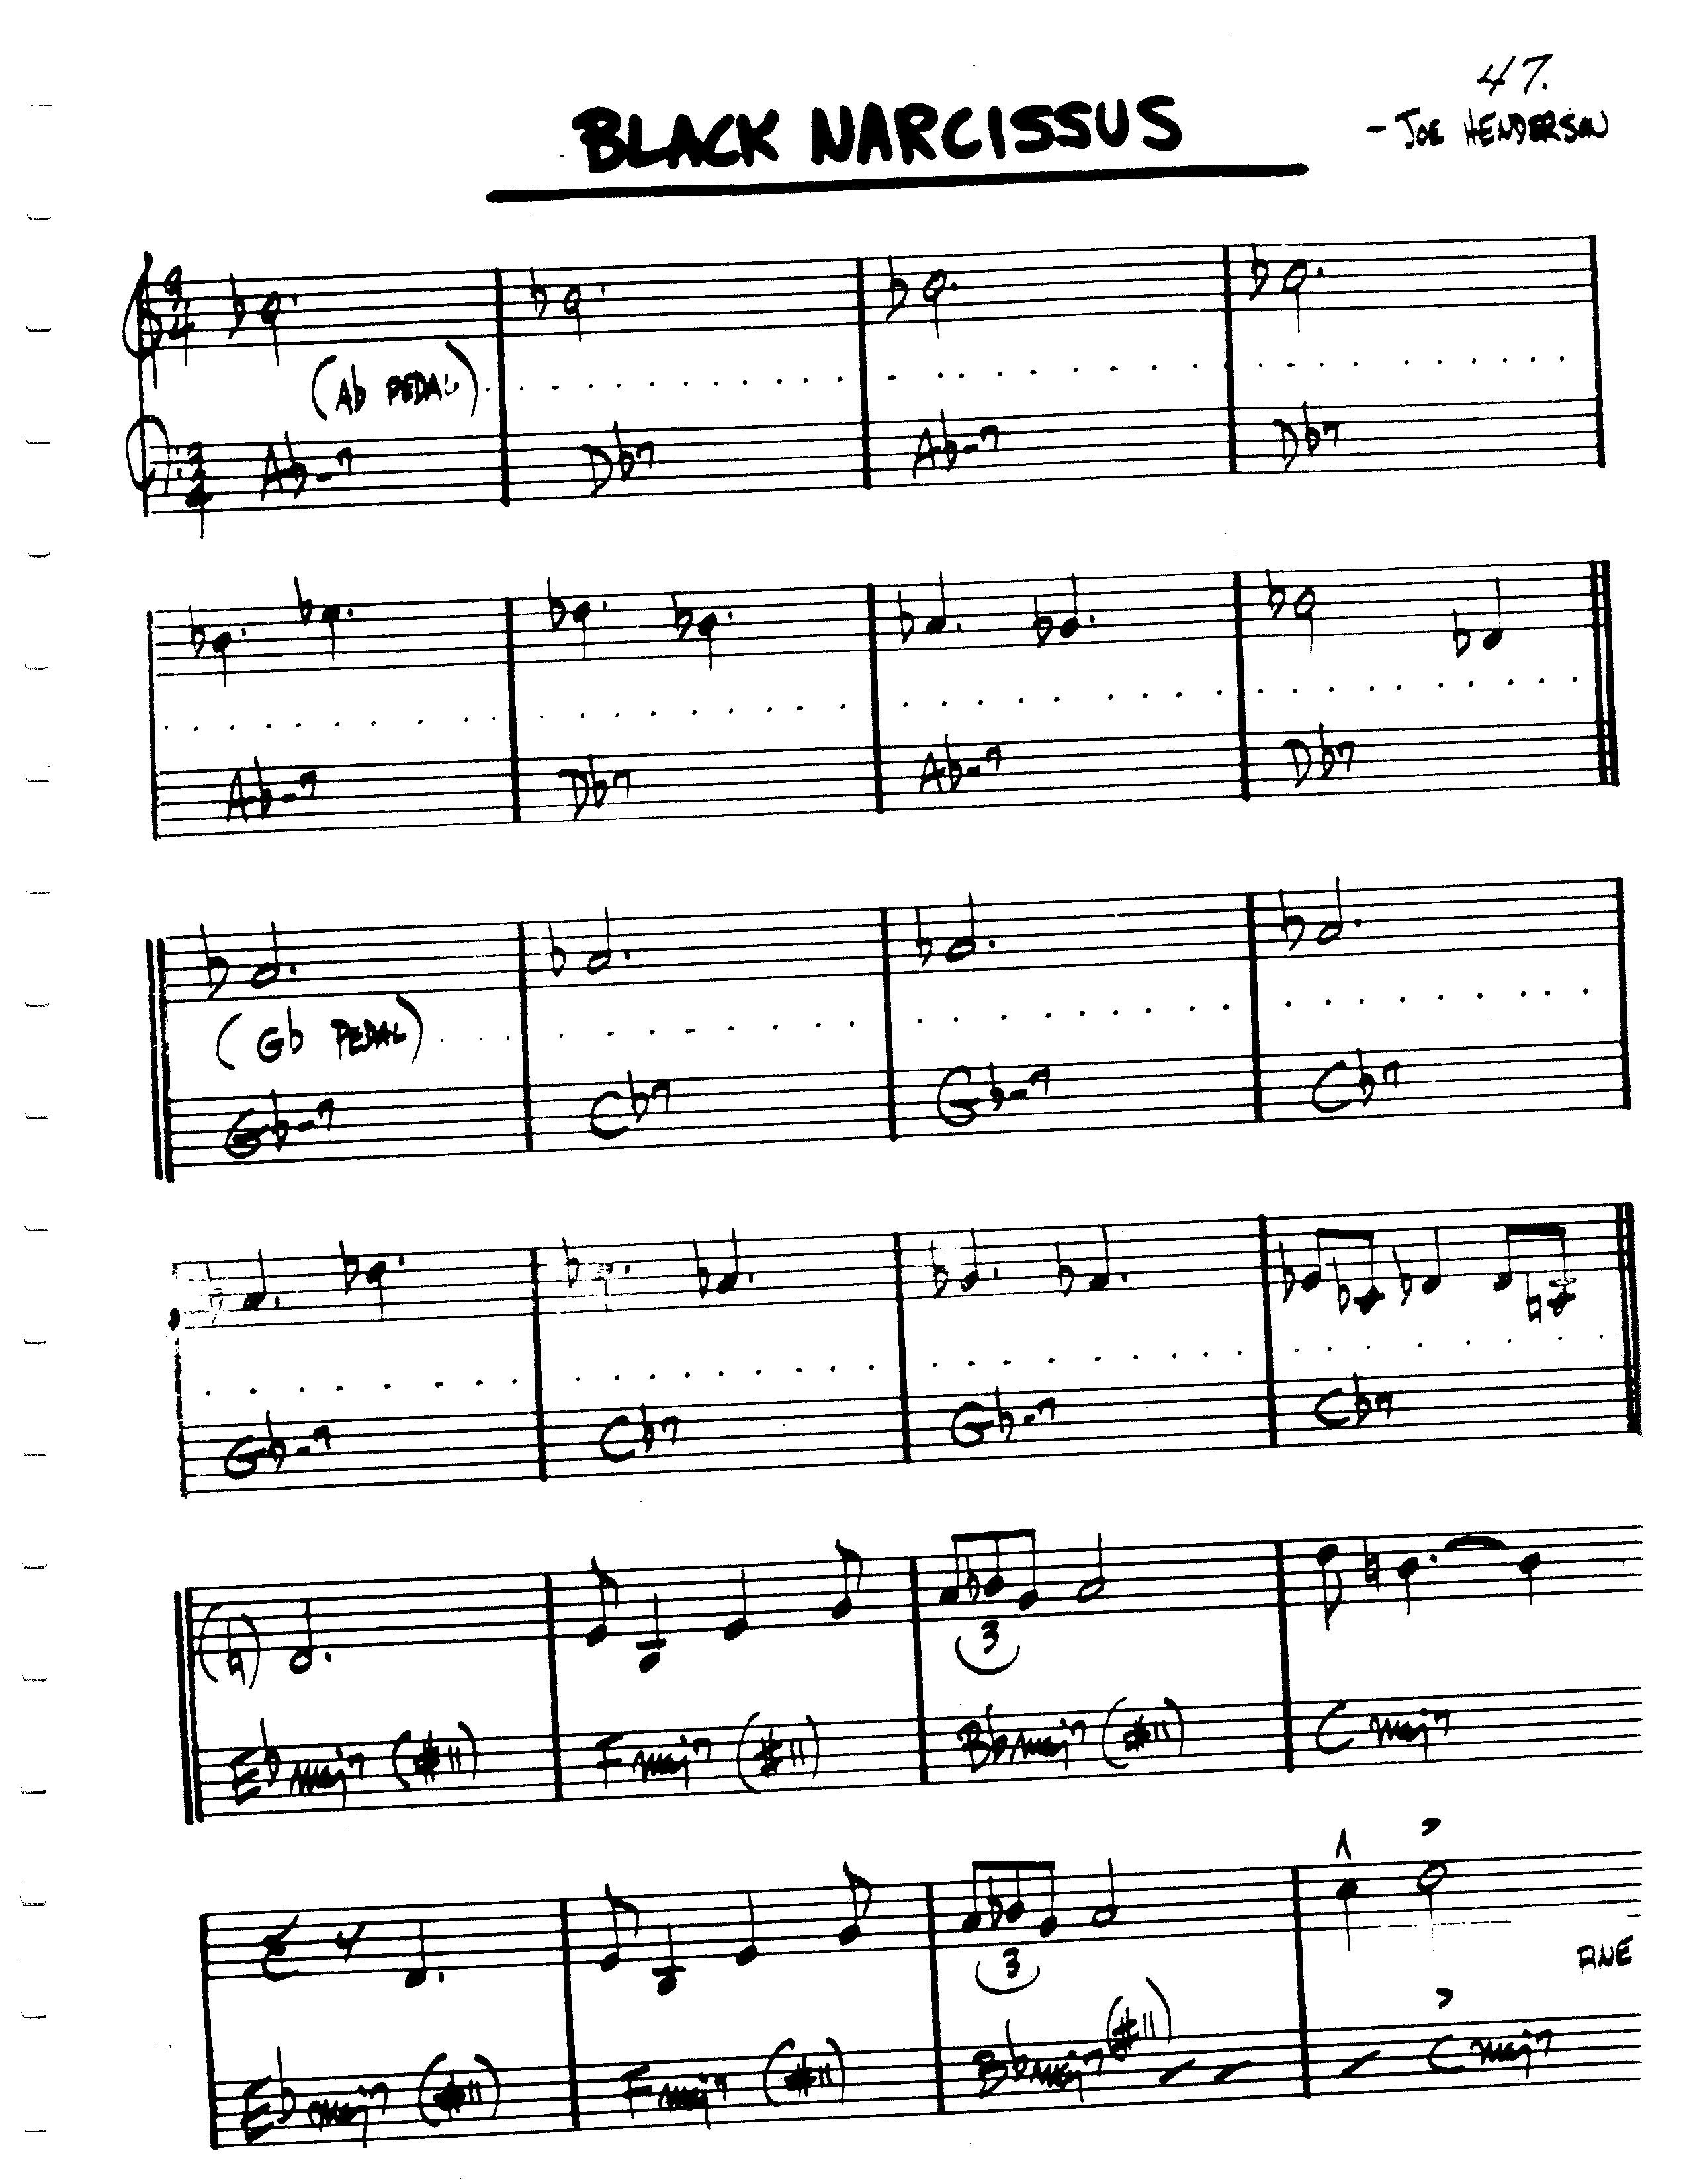 47.
BLACK NARCISSUS
- JOE HENDERSON
3 4
(Ab PEDAL)
3 4 Ab-7 Db7 Ab-7 Db7
Ab-7 Db7 Ab-7 Db7
(Gb PEDAL)
Gb-7 Cb7 Gb-7 Cb7
Gb-7 Cb7 Gb-7 Cb7
3
Ebmaj7 (#11) Fmaj7 (#11) Bbmaj7 (#11) Cmaj7
3
FINE
Ebmaj7 (#11) Fmaj7 (#11) Bbmaj7 (#11) Cmaj7